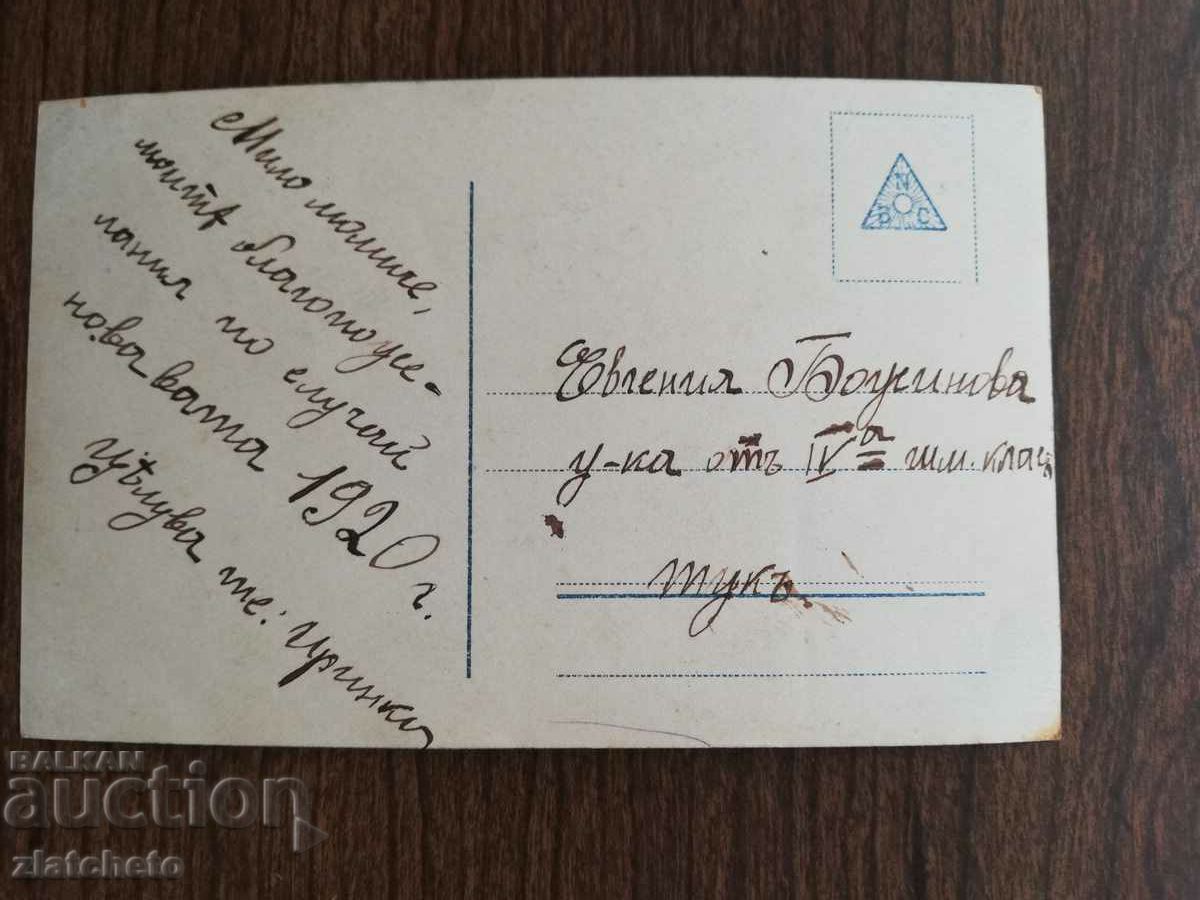 Мило момиче,
моитѣ благопоже-
лания по случай
новавата 1920 г.
Цѣлува те:
N
B C
Евгения Божинова
у-ка отъ IVа шм. клас
тукъ.
BALKAN
auction
zlatcheto